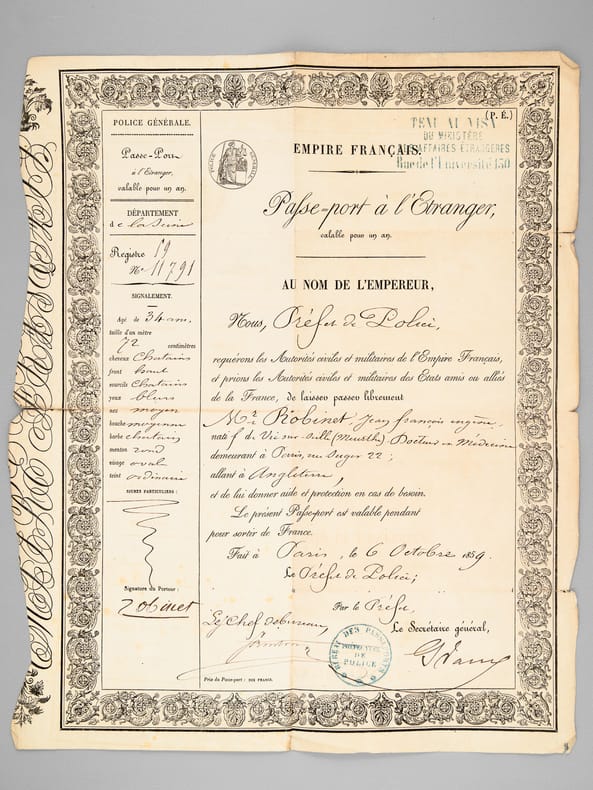 POLICE GÉNÉRALE.
Passe-Port
à l'Etranger,
valable pour un an.
DÉPARTEMENT
de la Seine
Registre 59
N° 11791
SIGNALEMENT.
Agé de 34 ans,
taille d'un mètre
72 centimètres
cheveux Chatains
front haut
sourcils Chatains
yeux bleus
nez moyen
bouche moyenne
barbe chatain
menton rond
visage oval
teint ordinaire
SIGNES PARTICULIERS :
Signature du Porteur :
Robinet
(P. É.)
DU MINISTÈRE
AFFAIRES ÉTRANGÈRES
Rue de l'Université 130
EMPIRE FRANÇAIS.
Passe-port à l'Etranger,
valable pour un an.
AU NOM DE L'EMPEREUR,
Nous, Préfet de Police,
requérons les Autorités civiles et militaires de l'Empire Français,
et prions les Autorités civiles et militaires des Etats amis ou alliés
de la France, de laisser passer librement
Mr Robinet Jean françois eugène,
natif d. Vic sur Seille (Meurthe) Docteur en Médecine
demeurant à Paris, rue Suger 22 ;
allant à Angleterre,
et de lui donner aide et protection en cas de besoin.
Le présent Passe-port est valable pendant
pour sortir de France.
Fait à Paris, le 6 Octobre 1859.
Le Préfet de Police ;
Par le Préfet,
Le Chef de bureau,
Le Secrétaire général,
BUREAU DES PASSEPORTS
PRÉFECTURE
DE
POLICE
Prix du Passe-port : DIX FRANCS.